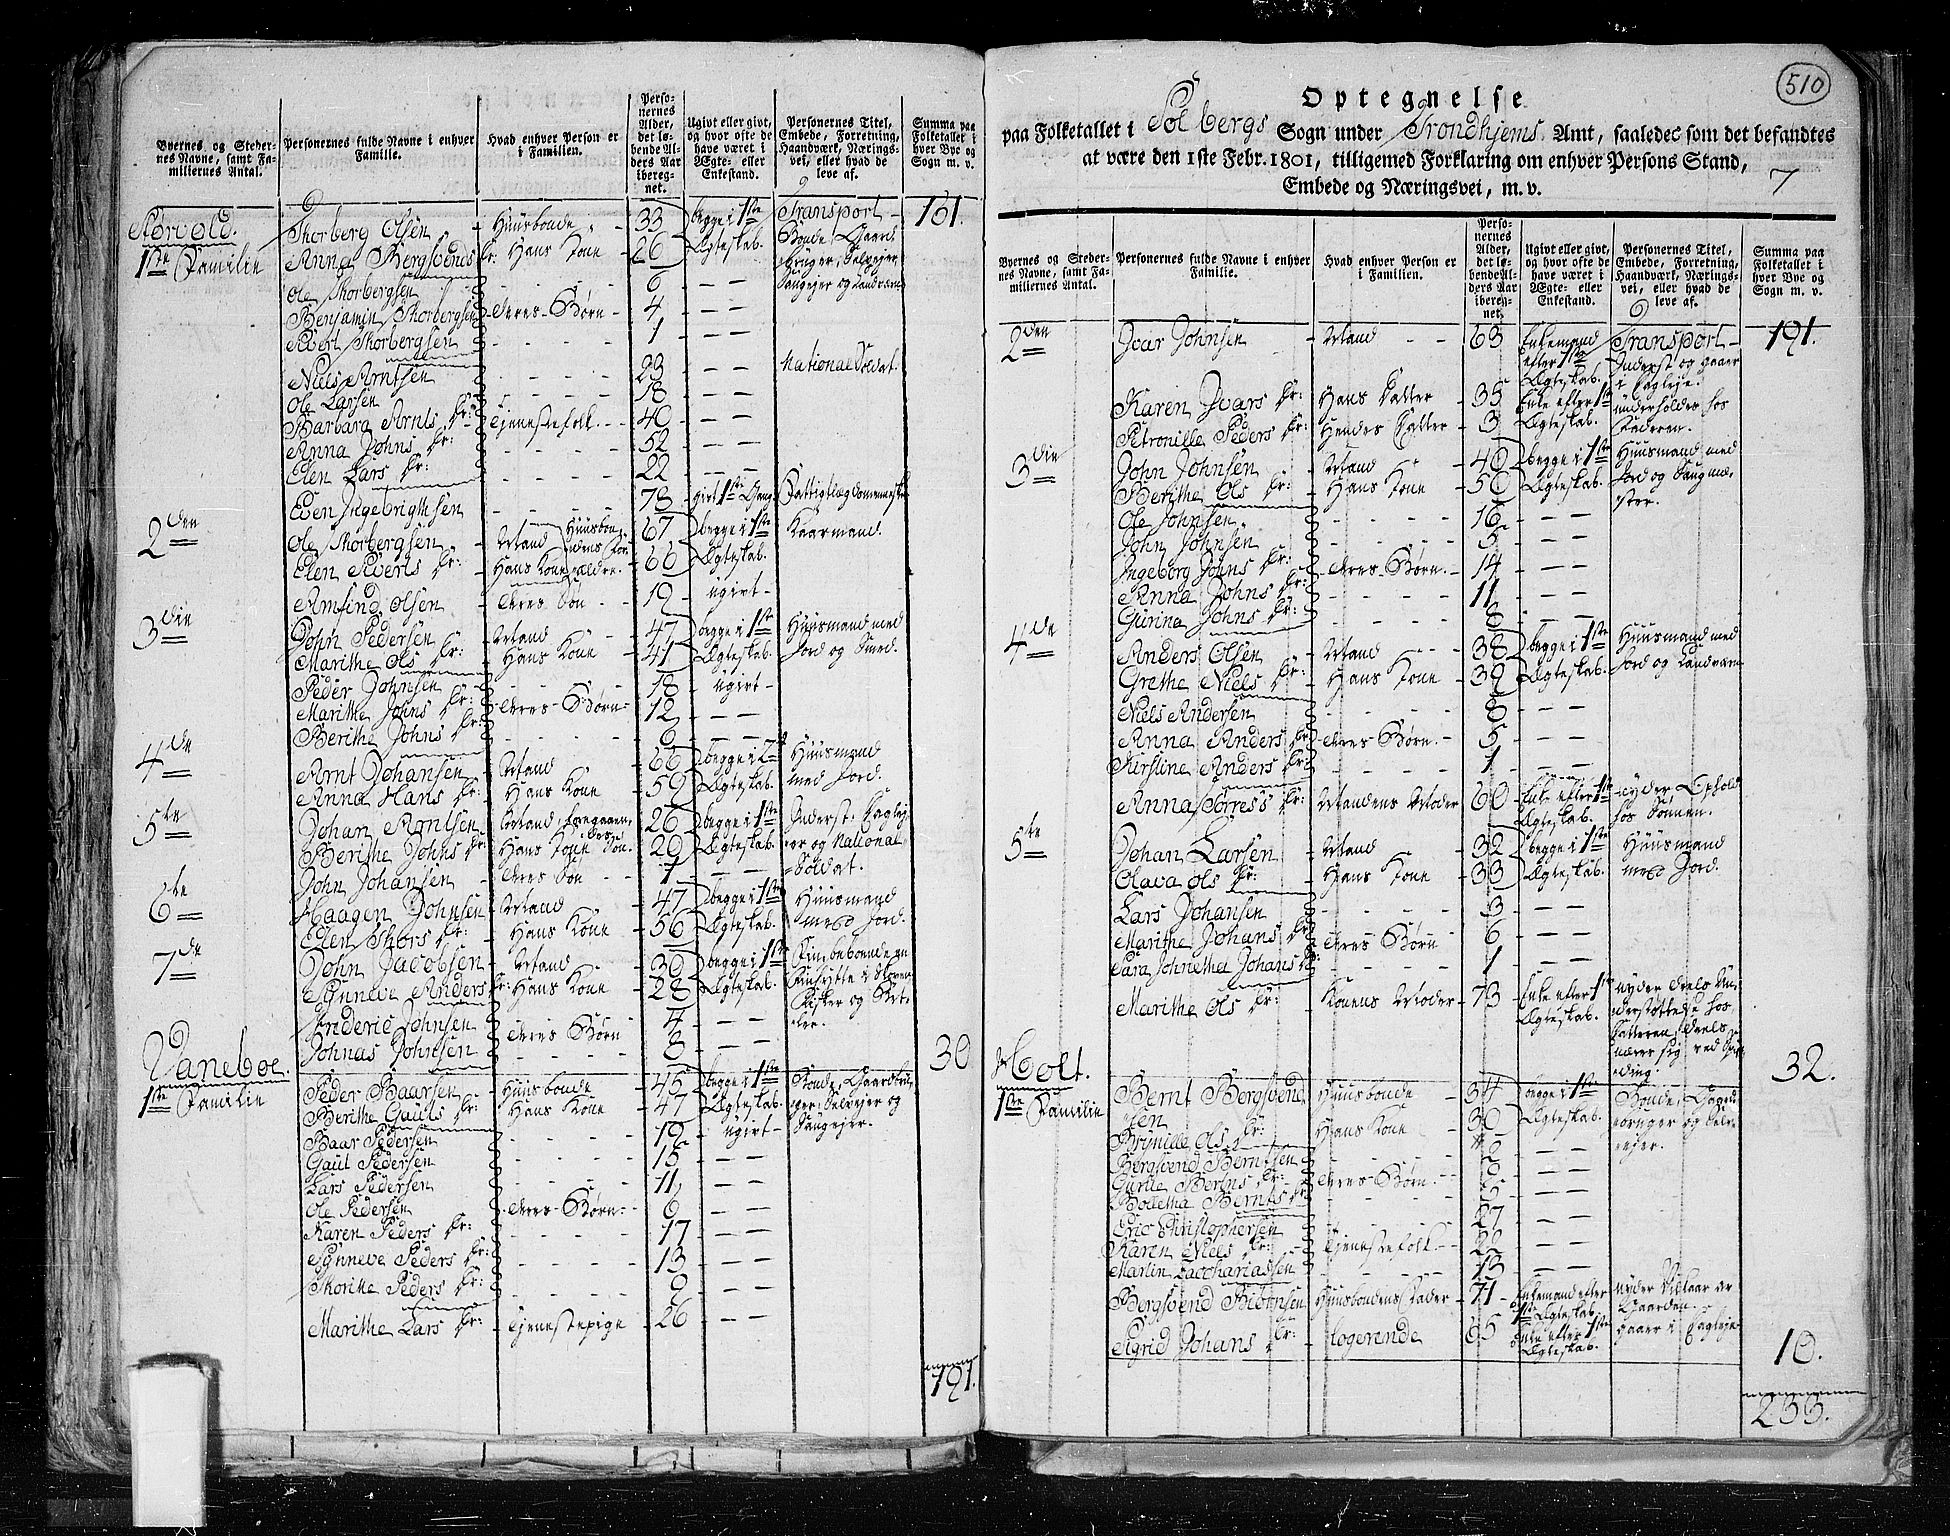 Byernes og Stedernes Navne, samt Familiernes Antal.
Personernes fulde Navne i enhver Familie.
Hvad enhver Person er i Familien.
Personernes Alder, det løbende Alders Aar iberegnet.
Ugivt eller givt, og hvor ofte de have været i Ægte- eller Enkestand.
Personernes Titel, Embede, Forretning, Haandværk, Næringsvei, eller hvad de leve af.
Summa paa Folketallet i hver Bye og Sogn m. v.
Transport 161.
1ste Familie
Thorberg Olsen Huusbonde 33 begge i 1ste Bonde, Gaard
Anna Bergsvends Dr: Hans Kone 26 Ægteskab.
Ole Thorbergsen 6 — —
Benjamin Thorbergsen deres Børn 4 — —
Sivert Thorbergsen 1 — —
Niels Arntsen 23 — — National Soldat.
Ole Larsen 18 — —
Barbara Arnts Dr: Tjenestefolk 40 — —
Anna Johns Dr: 52 — —
Elen Lars Dr: 22 — —
Even Ingebrigthsen 78
2den Ole Thorbergsen Mand 67 begge i 1ste
Elen Siverts Dr: Hans Kone 66 Ægteskab.
Amfind Olsen deres Søn 19 ugivt
3die John Pedersen Mand 47 begge i 1ste Huusmand med
Marithe Ols Dr: Hans Kone 41 Ægteskab. Jord og Smed.
Peder Johnsen 18 ugivt
Marithe Johns Dr: deres Børn 12 — —
Berithe Johns Dr: 6 — —
4de Arnt Johansen Mand 66 begge i 2det Huusmand
Anna Hans Dr: Hans Kone 59 Ægteskab. med Jord.
5te Johan Arntsen Mand 26 begge i 1ste Inderst
Berithe Johns Dr: Hans Kone 20 Ægteskab. og National
John Johansen deres Søn 1 Soldat.
6te Haagen Johnsen Mand 47 begge i 1ste Huusmand
Elen Thors Dr: Hans Kone 56 Ægteskab. med Jord.
7de John Jacobsen Mand 30 begge i 1ste
Synneve Anders Dr: Hans Kone 28 Ægteskab.
Frideric Johnsen deres Børn 4 — —
Johnas Johnsen 8 — — 30
Vaneboe.
1ste Familie Peder Baarsen Huusbonde 45 begge i 1ste Bonde
Berithe Gauls Dr: Hans Kone 47 Ægteskab.
Baar Pedersen 19 ugivt
Gaul Pedersen 15 — —
Lars Pedersen 11 — —
Ole Pedersen deres Børn 6 — —
Karen Peders Dr: 17 — —
Synneve Peders Dr: 13 — —
Thorithe Peders Dr: 9 — —
Marithe Lars Dr: Tjenestepige 26 — —
191.
510
Optegnelse
paa Folketallet i Solbergs Sogn under Trondhjems Amt, saaledes som det befandtes
at være den 1ste Febr. 1801, tilligemed Forklaring om enhver Persons Stand,
Embede og Næringsvei, m. v.
7
Byernes og Stedernes Navne, samt Familiernes Antal.
Personernes fulde Navne i enhver Familie.
Hvad enhver Person er i Familien.
Personernes Alder, det løbende Alders Aar iberegnet.
Ugivt eller givt, og hvor ofte de have været i Ægte- eller Enkestand.
Personernes Titel, Embede, Forretning, Haandværk, Næringsvei, eller hvad de leve af.
Summa paa Folketallet i hver Bye og Sogn m. v.
Transport 191.
2den Ivar Johnsen Mand 63 Enkemand efter 1ste Ægteskab. Inderst og gaaer i Dagleje.
Karen Ivars Dr: Hans Datter 35 Enke efter 1ste underholdes hos
Petronille Peders Dr: Hendes Datter 3 Ægteskab. Faderen.
3die John Johnsen Mand 40 begge i 1ste Huusmand med
Berithe Ols Dr: Hans Kone 50 Ægteskab. Jord og Saugmester.
Ole Johnsen 16 — —
John Johnsen 5 — —
Ingeborg Johns Dr: deres Børn 14 — —
Anna Johns Dr: 11 — —
Gurina Johns Dr: 8 — —
4de Anders Olsen Mand 38 begge i 1ste Huusmand med
Grethe Niels Dr: Hans Kone 39 Ægteskab. Jord og
Niels Andersen 8 — —
Anna Anders Dr: deres Børn 5 — —
Kirstine Anders Dr: 1 — —
Anna Torress Dr: Mandens Moder 60 Enke efter 1ste Ægteskab. nyder Ophold hos Sønnen.
5te Johan Larsen Mand 32 begge i 1ste Huusmand
Olava Ols Dr: Hans Kone 33 Ægteskab. med Jord.
Lars Johansen 3 — —
Marithe Johans Dr: deres Børn 6 — —
Sara Johnetha Johans Dr: 1 — —
Marithe Ols Dr: Konens Moder 73 Enke efter 1ste Ægteskab. nyder deels Understøttelse hos Datteren, deels nærer sig ved
32.
Holt.
1ste Familie Bernt Bergsvendsen Huusbonde 34 begge i 1ste Bonde
Brynille Ols Dr: Hans Kone 30 Ægteskab.
Bergsvend Berntsen 2 — —
Gurue Bernts deres Børn — —
Bolletha Bernts Dr: 5 — —
Eric Christophersen 27 — —
Karen Niels Dr: Tjenestefolk 22 — —
Martin Zacchariassen 13 — —
Bergsvend Biörnsen Huusbondens Fader 71 Enkemand efter 1ste Ægteskab nyder Vilkaar av Gaarden.
Sigrid Johans Dr: Logerende 65 Enke efter 1ste Ægteskab. gaaer i Dagleje
10.
233.